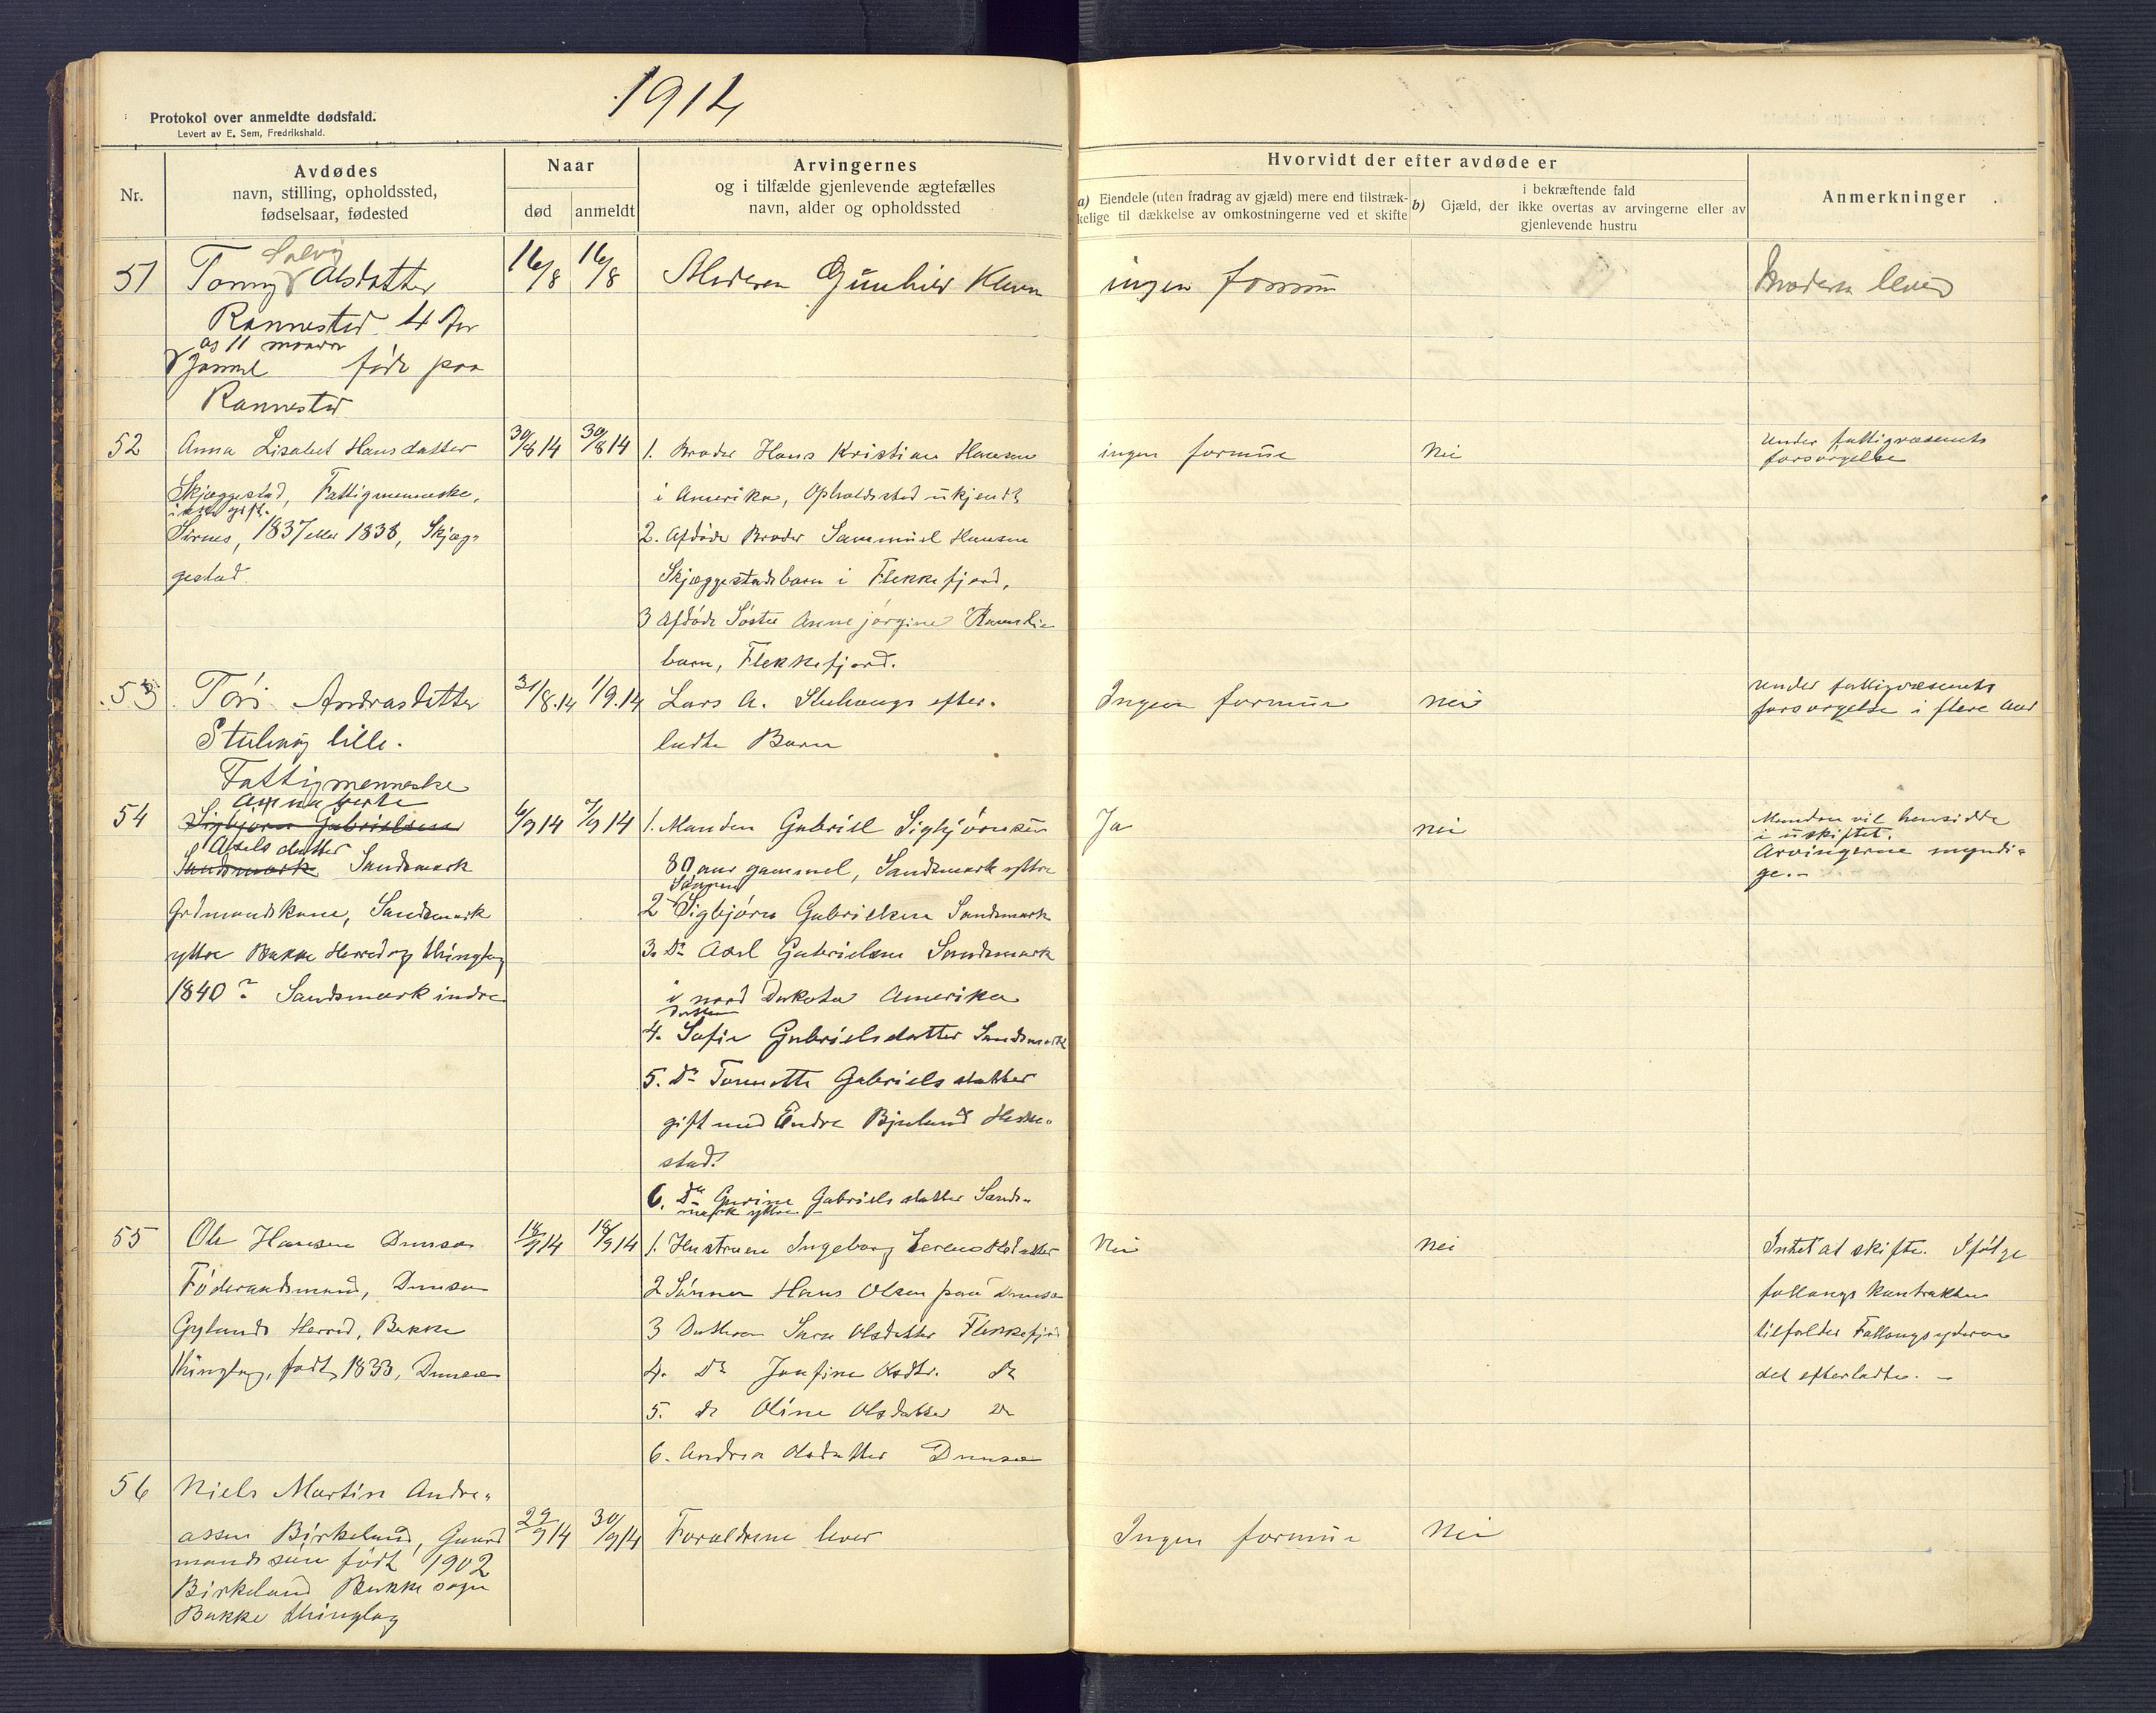 1914
Protokol over anmeldte dødsfald.
Levert av E. Sem, Fredrikshald.
Nr.
Avdødes
navn, stilling, opholdssted,
fødselsaar, fødested
Naar
død
anmeldt
Arvingernes
og i tilfælde gjenlevende ægtefælles
navn, alder og opholdssted
Hvorvidt der efter avdøde er
a) Eiendele (uten fradrag av gjæld) mere end tilstræk-
kelige til dækkelse av omkostningerne ved et skifte
i bekræftende fald
b) Gjæld, der ikke overtas av arvingerne eller av
gjenlevende hustru
Anmerkninger
51
Solvig
Tonny Olsdatter
Rannestad 4 Aar
og 11 maaner
Gammel født paa
Rannestad
16/8
16/8
Moderen Gunhild
ingen formue
Moderen lever
52
Anna Lisabet Hansdatter
Skjæggestad, Fattigmenneske,
ikke gift.
Sirnes, 1837 eller 1838, Skjæg-
gestad
30/8 14
30/8 14
1. Broder Hans Kristian Hansen
i Amerika, Opholdssted ukjendt
2. Afdøde Broder Sammuel Hansen
Skjæggestads barn i Flekkefjord,
3 Afdøde Søster Anne jørgine
barn, Flekkefjord.
ingen formue
Nei
Under fattigvæsenets
forsørgelse
53
Tori Andrasdatter
lille.
Fattigmenneske
31/8.14
1/9.14
Lars A. Stuhaugs efter-
ladte Barn
Ingen formue
nei
Under fattigvæsenets
forsørgelse i flere Aar
54
Anna Berte
Sigbjørn Gabrielsen
Axels datter
Sandsmark Sandsmark
Grdmandskone, Sandsmark
yttre Bakke Herred og thinglag
1840? Sandsmark indre
6/9 14
7/9 14
1. Manden Gabriel Sigbjørnsen
80 aar gammel, Sandsmark yttre
Sønnen
2 Sigbjørn Gabrielsen Sandsmark
3. Do Axel Gabrielsen Sandsmark
i nord Dakota Amerika
Datteren
4. Sofie Gabrielsdatter Sandsmark
5. Do Tonnette Gabrielsdatter
gift med Endre Bjuland Heske-
stad.
6. Do Gurine Gabrielsdatter Sands-
mark yttre
Ja
nei
Manden vil hensidde
i uskiftet.
Arvingerne myndi-
ge. -
55
Ole Hansen Dunsæ
Føderaadsmand, Dunsæ
Gylands Herred, Bakke
thinglag, født 1833, Dunsæ
18/9 14
18/9 14
1. Hustruen Ingeborg
2 Sønnen Hans Olsen paa Dunsæ
3 Datteren Sara Olsdatter Flekkefjord
4. Do Josefine Olsdtr. do
5. do Oline Olsdatter do
6. Andrea Olsdatter Dunsæ
Nei
Nei
Intet at skifte. Ifølge
follaugs kontrakten
tilfalder Follaugsyderen
det efterladte. -
56
Niels Martin Andre-
assen Birkeland, Gaard
mandssøn født 1902
Birkeland Bakke sogn
Bakke thinglag
29/9 14
30/9 14
Forældrene lever
Ingen formue
Nei